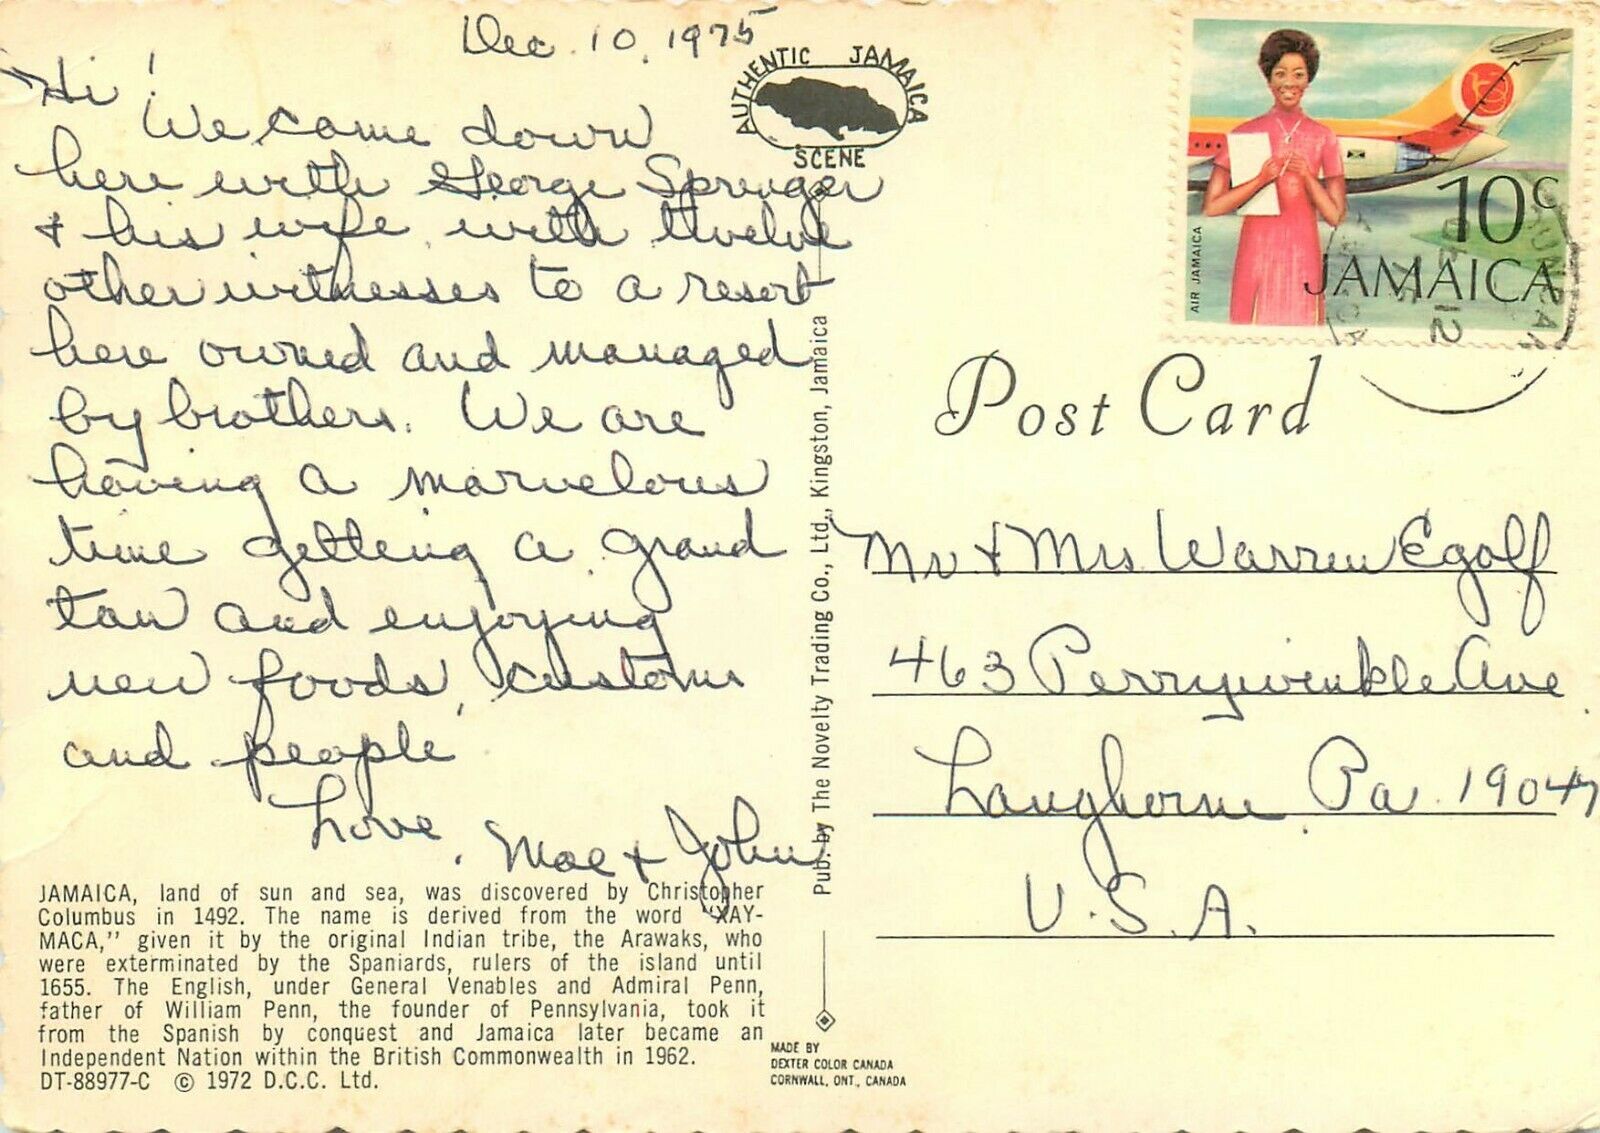 Dec. 10, 1975
Hi!
We came down
here with George Sprenger
+ his wife, with twelve
other witnesses to a resort
here owned and managed
by brothers. We are
having a marvelous
time getting a grand
tan and enjoying
new foods, customs
and people
Love,
Mae + John
AUTHENTIC JAMAICA
SCENE
JAMAICA, land of sun and sea, was discovered by Christopher
Columbus in 1492. The name is derived from the word "XAY-
MACA," given it by the original Indian tribe, the Arawaks, who
were exterminated by the Spaniards, rulers of the island until
1655. The English, under General Venables and Admiral Penn,
father of William Penn, the founder of Pennsylvania, took it
from the Spanish by conquest and Jamaica later became an
Independent Nation within the British Commonwealth in 1962.
DT-88977-C © 1972 D.C.C. Ltd.
Pub. by The Novelty Trading Co., Ltd., Kingston, Jamaica
MADE BY
DEXTER COLOR CANADA
CORNWALL, ONT., CANADA
AIR JAMAICA
10c
JAMAICA
12
Post Card
Mr + Mrs Warren Egolf
463 Perrywinkle Ave
Langhorne, Pa. 19047
U.S.A.